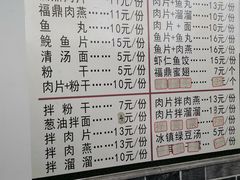 福鼎肉燕 11元/份
鱼丸 10元/份
鮸鱼片 15元/份
清汤面 5元/份
粉干 5元/份
肉片+粉干 10元/份
拌粉干 7元/份
葱油拌面 元/份
拌肉片 13元/份
拌肉燕 13元/份
拌溜溜 10元/份
肉片+鱼丸
肉片+溜溜 10元/份
肉片+肉燕 11元/份
鱼片+鱼丸 15元/份
鱼片+肉燕 16元/份
虾仁鱼饺 15元/份
福鼎蜜翅 7元/个
肉片 10元/份
肉片拌肉燕 13元/份
肉片拌溜溜 13元/份
冰镇绿豆汤 5元/份